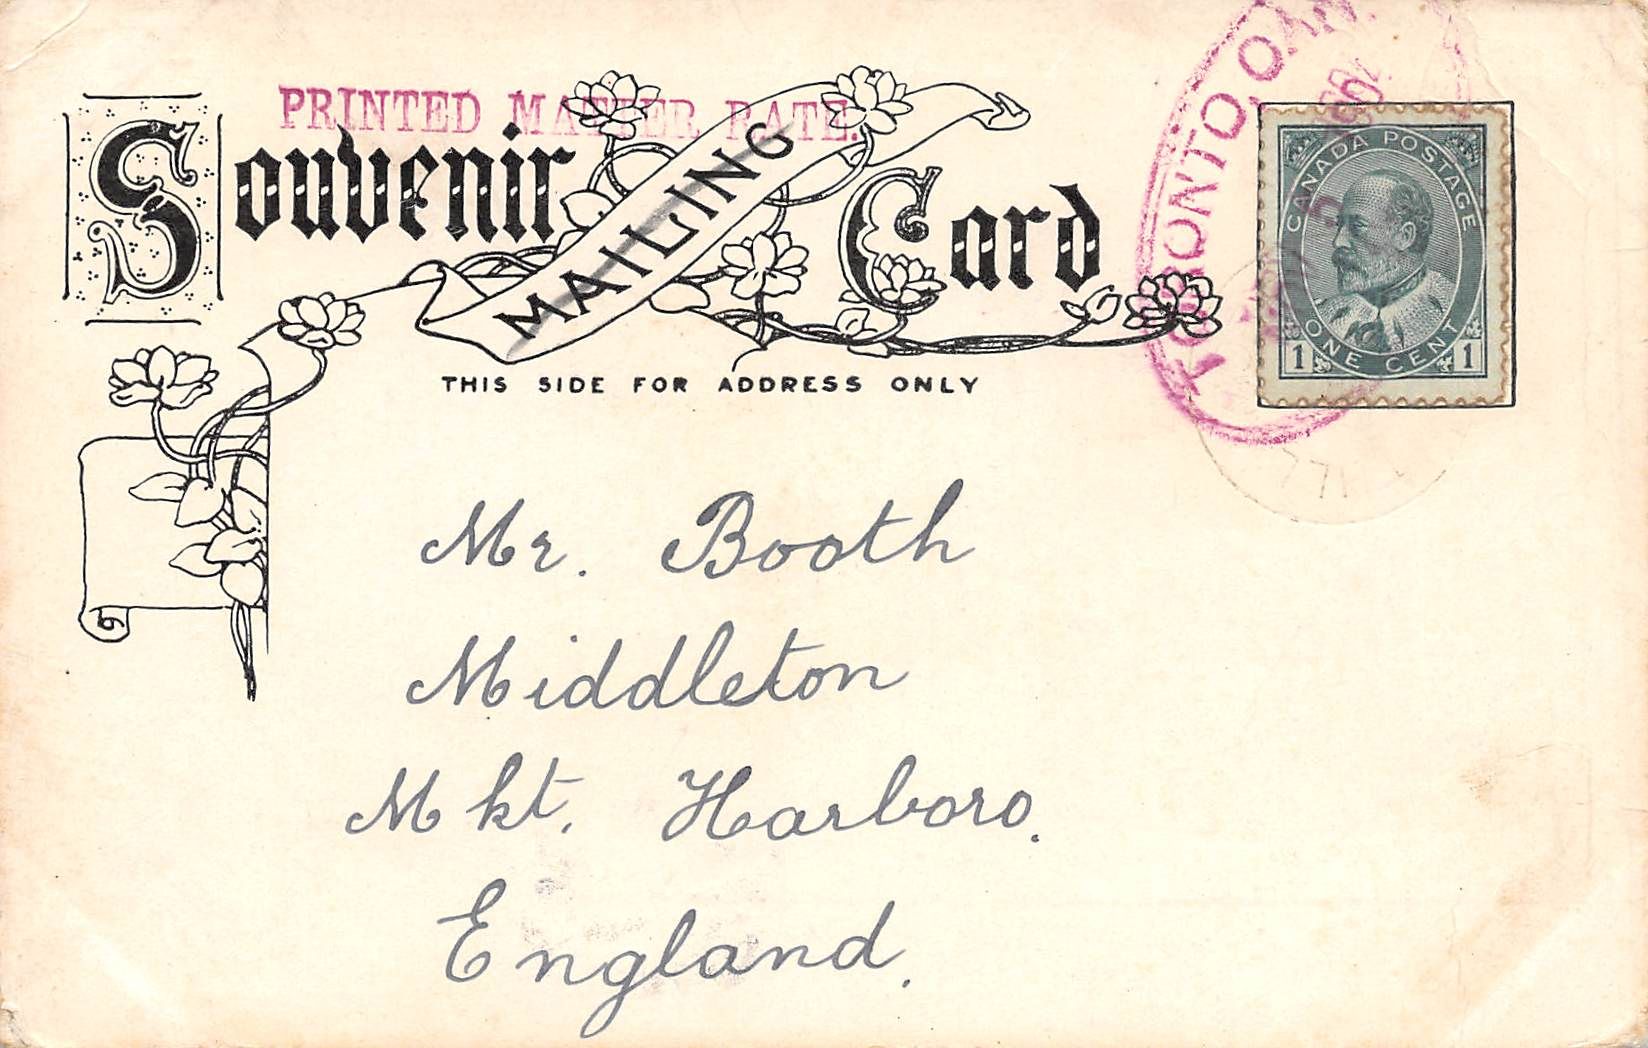 PRINTED MATTER RATE.
Souvenir MAILING Card
THIS SIDE FOR ADDRESS ONLY
TORONTO, CAN.
CANADA POSTAGE
1 ONE CENT 1
Mr. Booth
Middleton
Mkt. Harboro.
England.